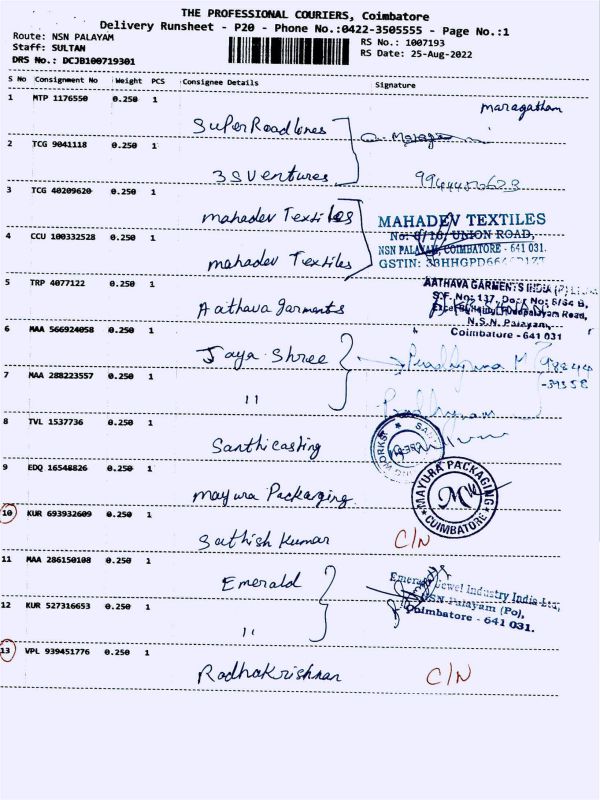 THE PROFESSIONAL COURIERS, Coimbatore
Delivery Runsheet - P20 - Phone No.:0422-3505555 - Page No.:1
Route: NSN PALAYAM
Staff: SULTAN
DRS No.: DCJB100719301
RS No.: 1007193
RS Date: 25-Aug-2022
S No Consignment No Weight PCS Consignee Details Signature
1 MTP 1176550 0.250 1
Super Roadlines
maragatham
2 TCG 9041118 0.250 1
3S Ventures
3 TCG 40209620 0.250 1
mahadev Textiles
MAHADEV TEXTILES
UNION ROAD,
4 CCU 100332528 0.250 1
NSN PALAYAM, COIMBATORE - 641 031.
mahadev Textiles
GSTIN:
5 TRP 4077122 0.250 1
Aathava garments
AATHAVA GARMENTS INDIA (P)
S.F. No: 137, Door No: 6/64 B,
Road,
N.S.N. Palayam,
Coimbatore - 641 031
6 MAA 566924058 0.250 1
Jaya Shree
7 MAA 288223557 0.250 1
"
8 TVL 1537736 0.250 1
Santhi casting
9 EDQ 16548826 0.250 1
Mayura Packaging
MAYURA PACKAGING
COIMBATORE
10 KUR 693932609 0.250 1
Sathish Kumar
C/N
11 MAA 286150108 0.250 1
Emerald
Emerald Jewel Industry India Ltd,
NSN-Palayam (Po),
Coimbatore - 641 031.
12 KUR 527316653 0.250 1
"
13 VPL 939451776 0.250 1
Radhakrishnan
C/N